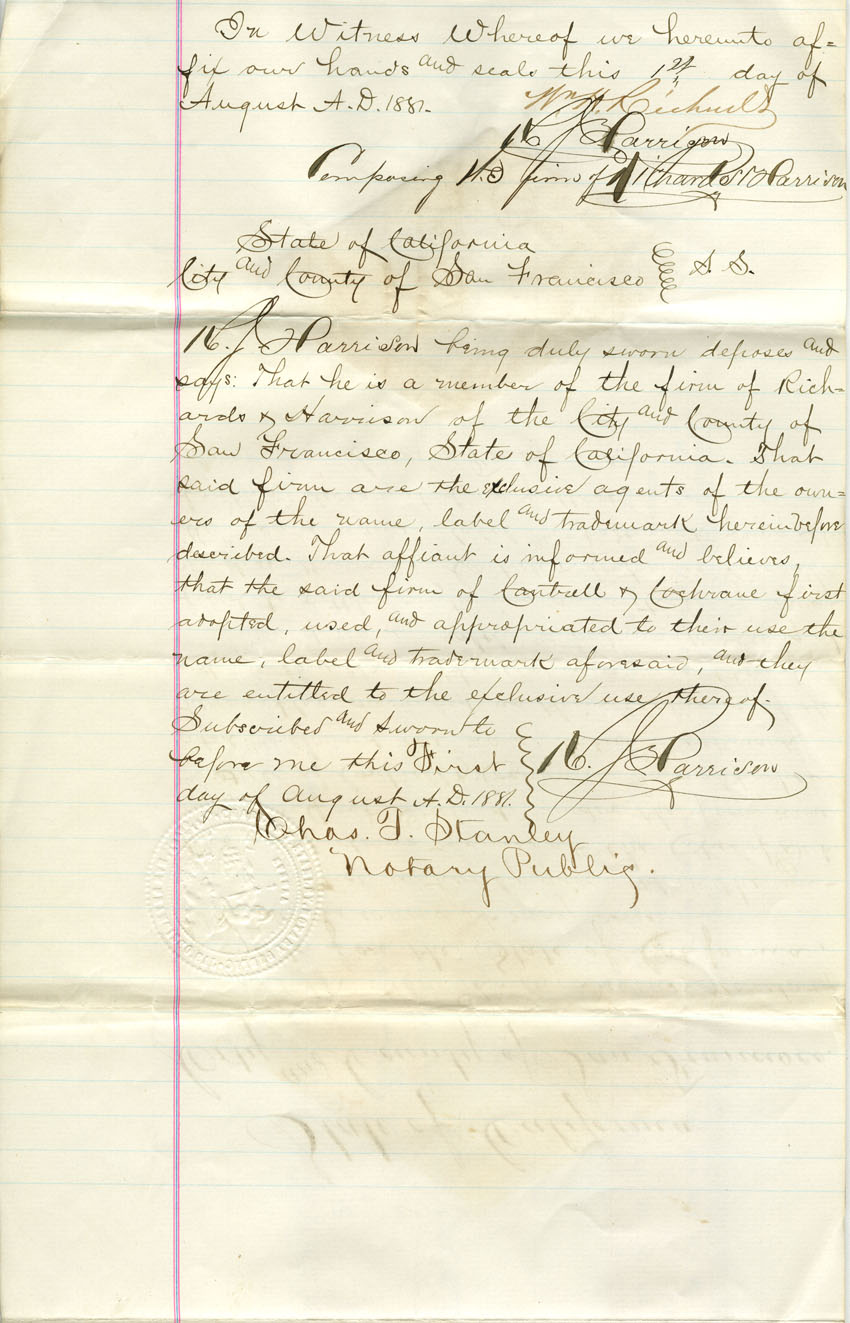 In Witness Whereof we hereunto af=
fix our hands and seals this 1st day of
August A.D. 1881.
Wm H.
H. J. Harrison
Composing the firm of Richards & Harrison
State of California
City and County of San Francisco S.S.
H. J. Harrison being duly sworn deposes and
says: That he is a member of the firm of Rich-
ards & Harrison of the City and County of
San Francisco, State of California. That
said firm are the exclusive agents of the own=
ers of the name, label and trademark hereinbefore
described. That affiant is informed and believes,
that the said firm of Cantrell & Cochrane first
adopted, used, and appropriated to their use the
name, label and trademark aforesaid, and they
are entitled to the exclusive use thereof.
Subscribed and sworn to
before me this First
day of August A.D. 1881.
H. J. Harrison
Chas. T. Stanley
Notary Public.